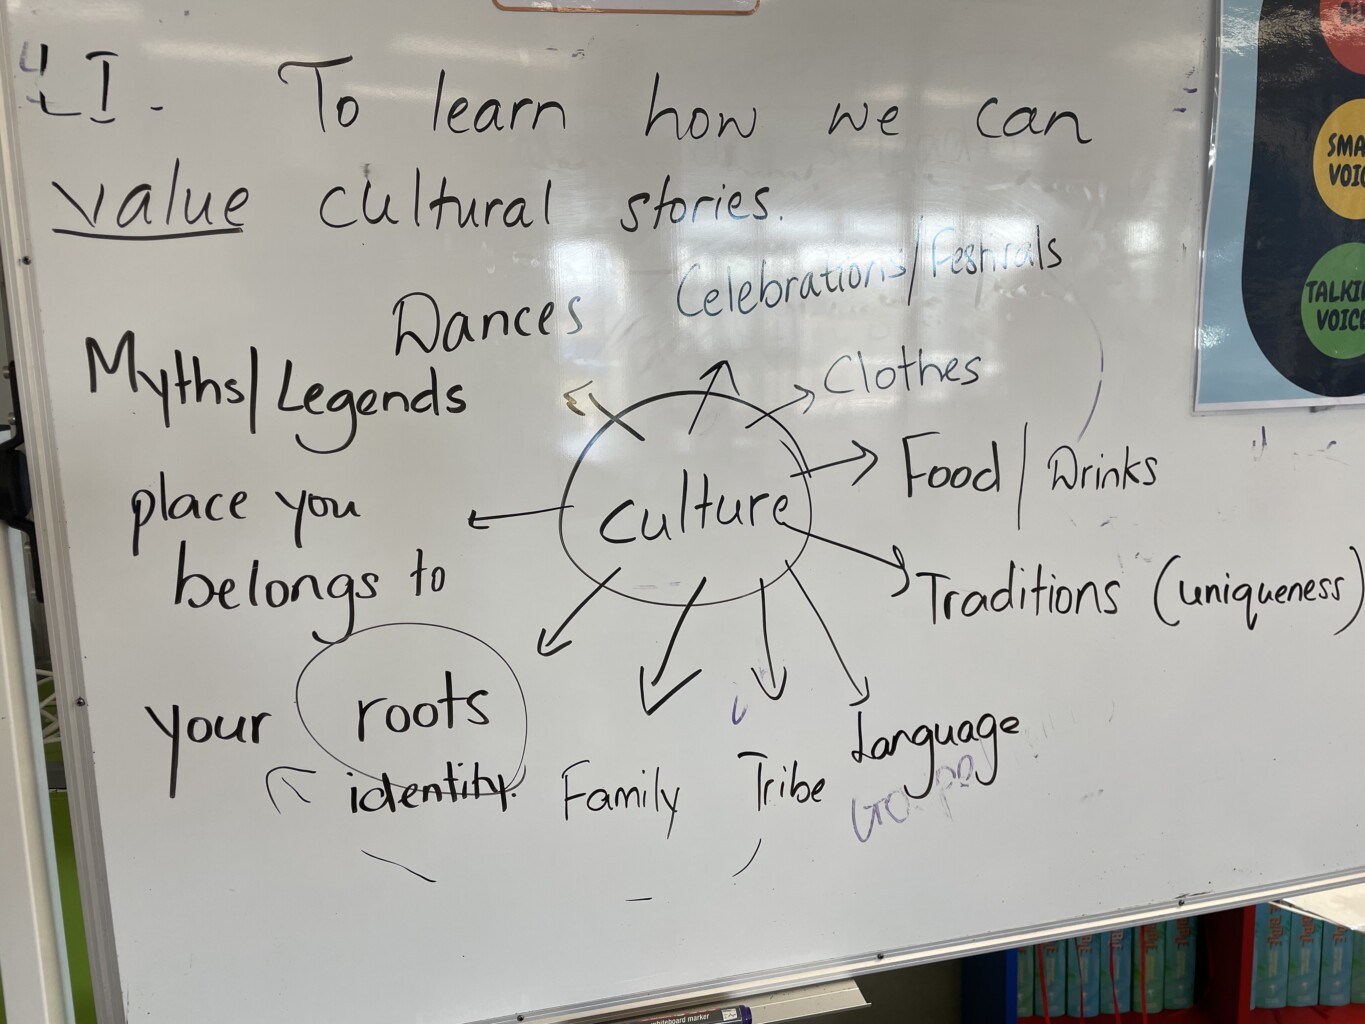 LI - To learn how we can
value cultural stories.
Celebrations/Festivals
Dances
Myths/Legends
Clothes
culture
Food / Drinks
place you
belongs to
Traditions (uniqueness)
your roots
identity.
Family
Tribe
Language
SMA
VOIC
TALKI
VOICE
whiteboard marker
BIBLE